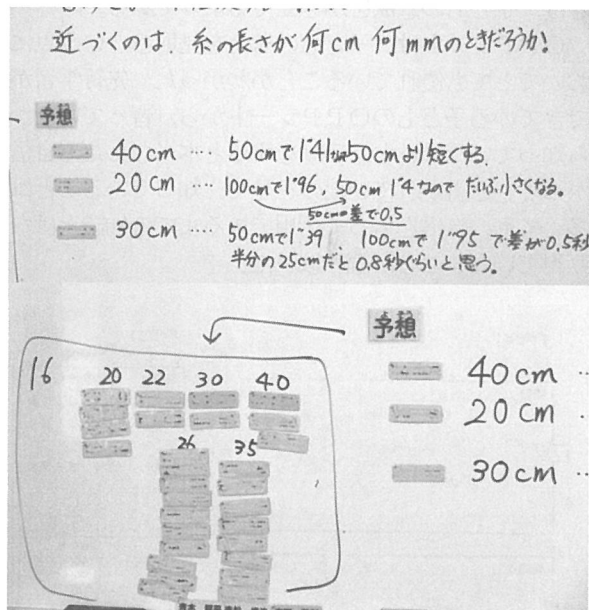 近づくのは、糸の長さが何cm何mmのときだろうか!
予想
40cm …… 50cmで1"41なので50cmより短くする。
20cm …… 100cmで1"96, 50cm 1"4なので だいぶ小さくなる。
50cmの差で0.5
30cm …… 50cmで1"39、100cmで1"95で差が0.5秒
半分の25cmだと0.8秒ぐらいと思う。
予想
16 20 22 30 40
26 35
40cm ‥
20cm ‥
30cm ‥